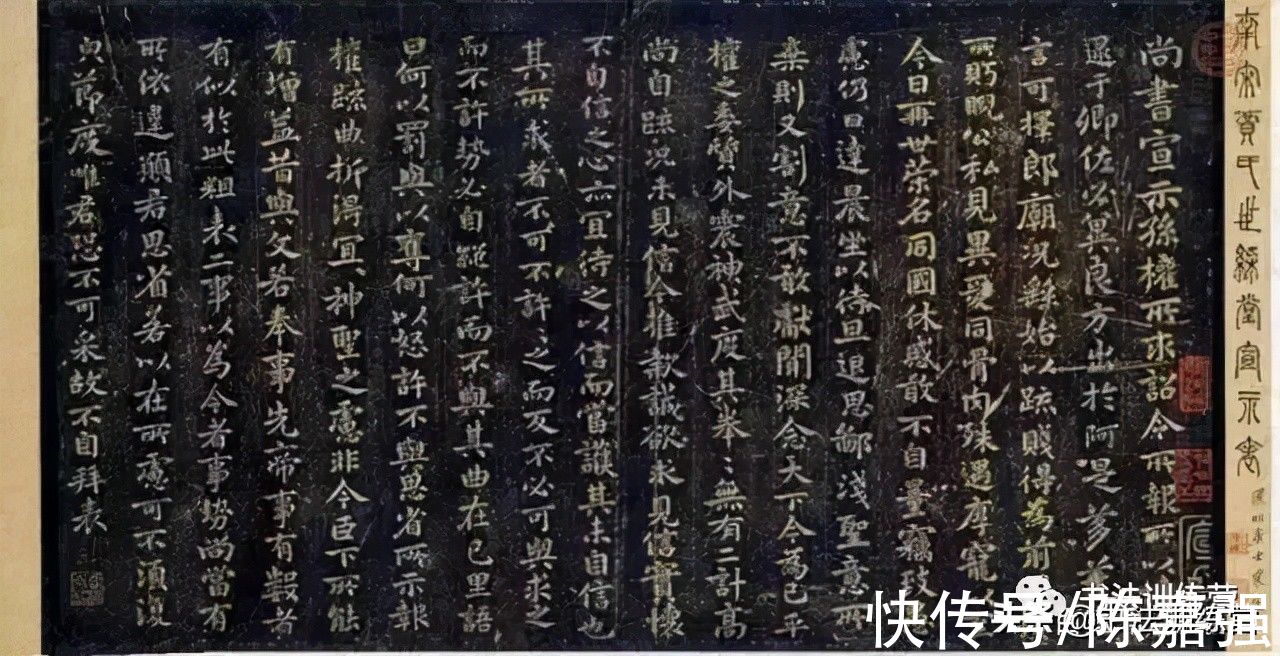 南宋賈氏世綵堂宣示表
尚書宣示孫權所求詔令所報所以
逮于卿佐必冀良方出於阿是芻
言可擇郎廟況繇始以疏賤得為前
所眄公私見異愛同骨肉殊遇厚寵
今日再世榮名同國休慼敢不自量竊致
慮仍日達晨坐以待旦退思鄙淺聖意所
棄則又割意不敢獻聞深念天下今為已平
權之委質外震神武度其拳〻無有二計高
尚自疏況未見信今推款誠欲求見信實懷
不自信之心亦宜待之以信而當護其未自信也
其所求者不可不許〻之而反不必可與求之
而不許勢必自絕許而不與其曲在己里語
曰何以罰與以奪何以怒許不與思省所示報
權疏曲折得宜〻神聖之慮非今臣下所能
有增益昔與文若奉事先帝事有數者
有似於此粗表二事以為今者事勢尚當有
所依違願君思省若以在所慮可不須復
與節度唯君恐不可采故不自拜表
快传号/陈嘉强